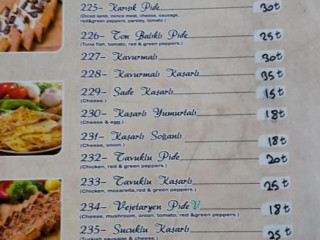 225- Karışık Pide 30 ₺
(Diced lamb, mince meat, cheese, sausage,
red&green peppers, parsley, tomato.)
226- Ton Balıklı Pide 25 ₺
(Tuna fish, tomato, red & green peppers.)
227- Kavurmalı 30 ₺
228- Kavurmalı Kaşarlı 35 ₺
229- Sade Kaşarlı 15 ₺
(Cheese.)
230- Kaşarlı Yumurtalı 18 ₺
(Cheese & egg.)
231- Kaşarlı Soğanlı 18 ₺
(Cheese, onion.)
232- Tavuklu Pide 20 ₺
(Chicken, tomato, red & green peppers.)
233- Tavuklu Kaşarlı 25 ₺
(Chicken, mozarella, red & green peppers.)
234- Vejetaryen Pide V 18 ₺
(Cheese, mushroom, onion, tomato, red &green peppers.)
235- Sucuklu Kaşarlı 25 ₺
(Turkish sausage & cheese.)